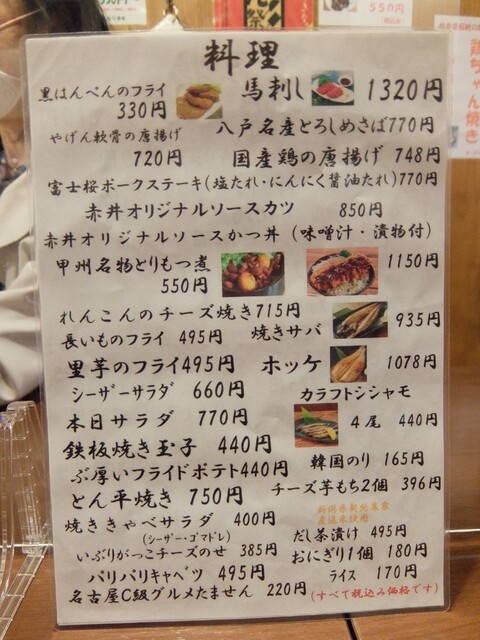 料理
黒はんぺんのフライ 330円
馬刺し 1320円
やげん軟骨の唐揚げ 720円
八戸名産とろしめさば770円
国産鶏の唐揚げ 748円
富士桜ポークステーキ(塩たれ・にんにく醤油たれ)770円
赤井オリジナルソースカツ 850円
赤井オリジナルソースかつ丼 (味噌汁・漬物付) 1150円
甲州名物とりもつ煮 550円
れんこんのチーズ焼き715円
焼きサバ 935円
長いものフライ 495円
里芋のフライ495円
ホッケ 1078円
シーザーサラダ 660円
カラフトシシャモ 4尾 440円
本日サラダ 770円
鉄板焼き玉子 440円
韓国のり 165円
ぶ厚いフライドポテト440円
チーズ芋もち2個 396円
とん平焼き 750円
焼ききゃべサラダ 400円
(シーザー・ゴマドレ)
だし茶漬け 495円
いぶりがっこチーズのせ 385円
おにぎり1個 180円
パリパリキャベツ 495円
ライス 170円
名古屋C級グルメたません 220円
(すべて税込み価格です)
550円
鶏ちゃん焼き